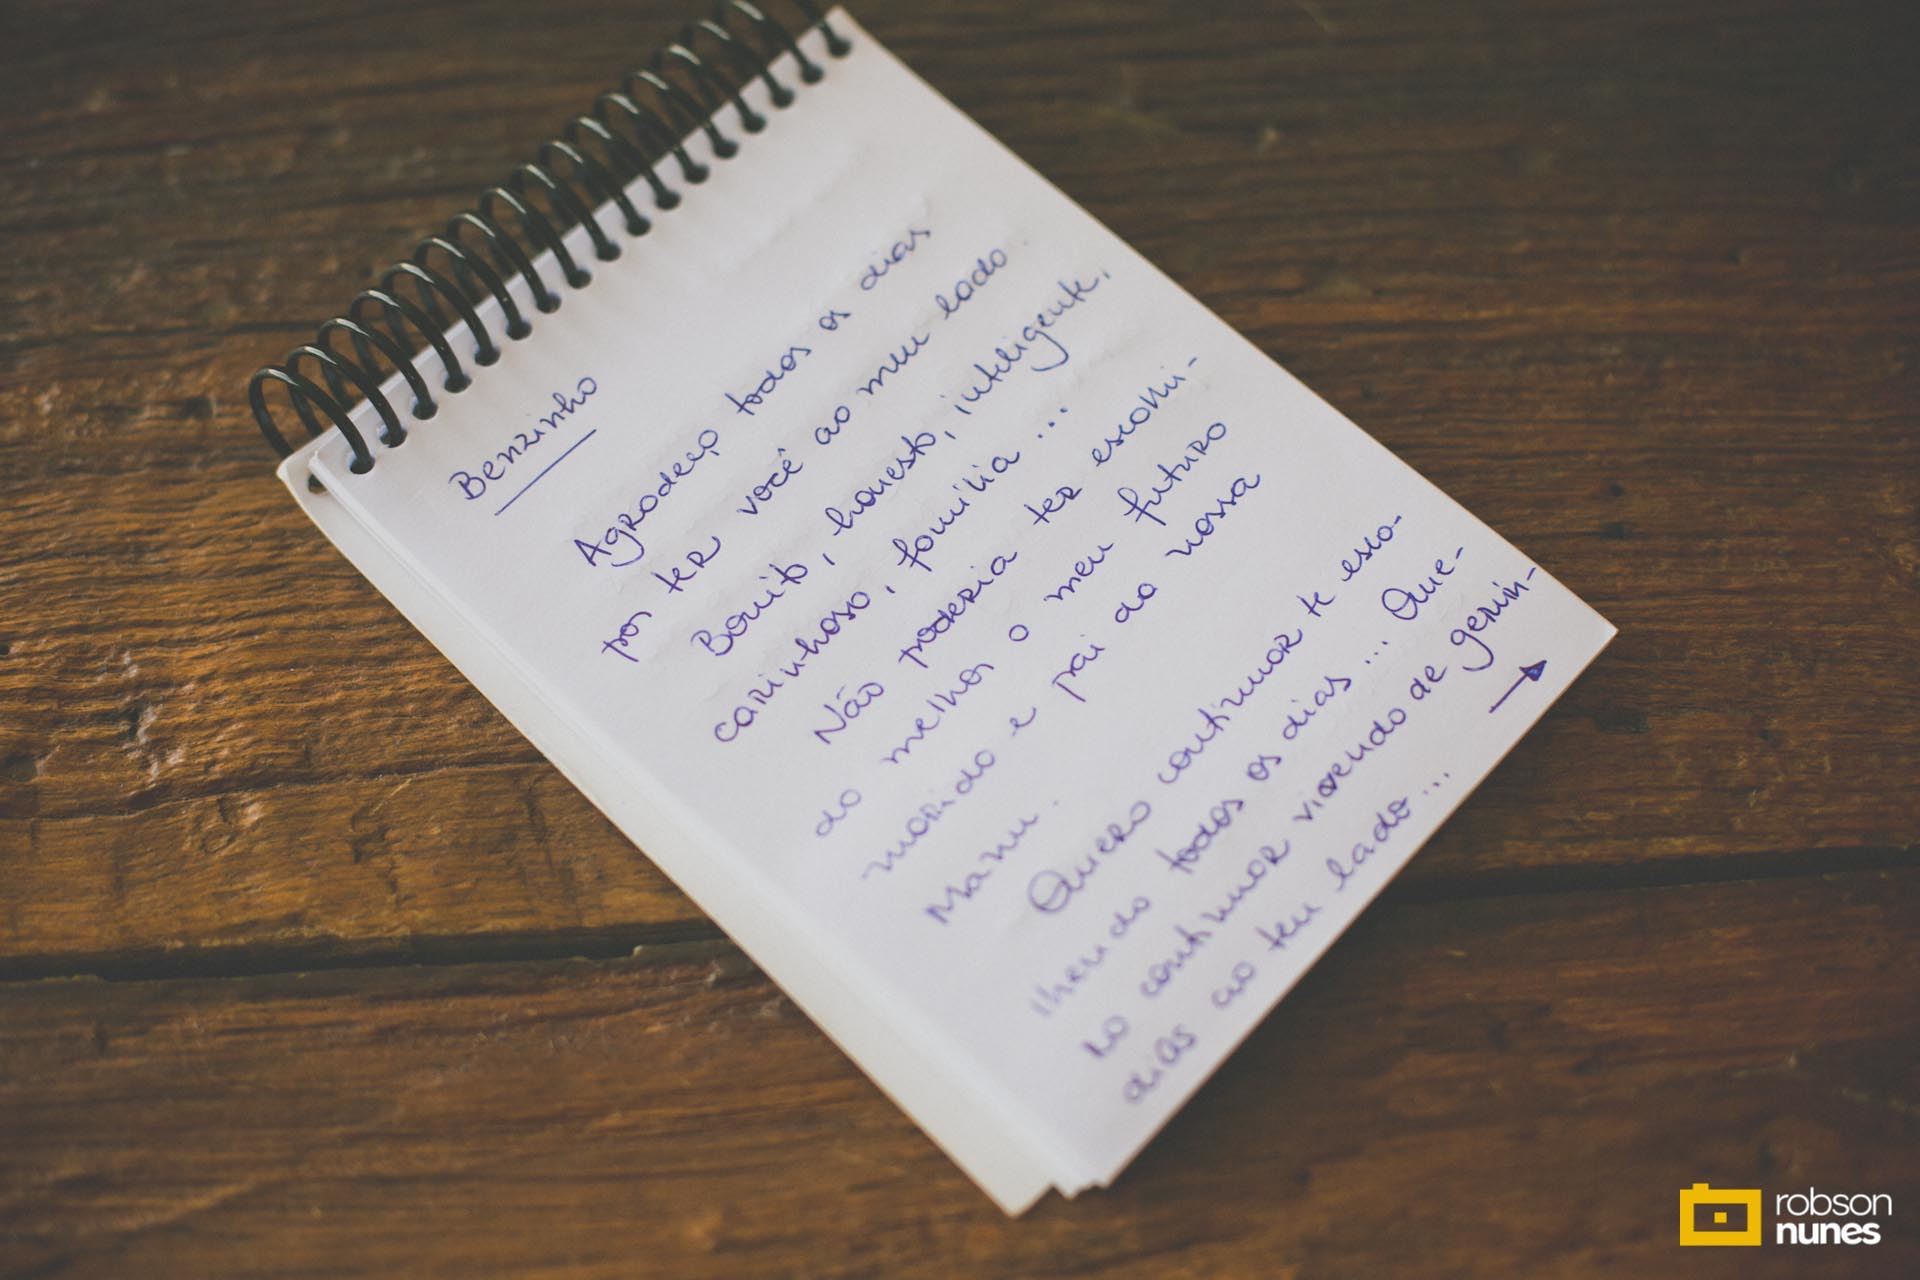 Benzinho
Agradeço todos os dias
por ter você ao meu lado.
Bonito, honesto, inteligente,
carinhoso, família...
Não poderia ter escolhi-
do melhor o meu futuro
marido e pai da nossa
Manu.
Quero continuar te esco-
lhendo todos os dias... Que-
ro continuar vivendo de gerún-
dias ao teu lado...
robson
nunes